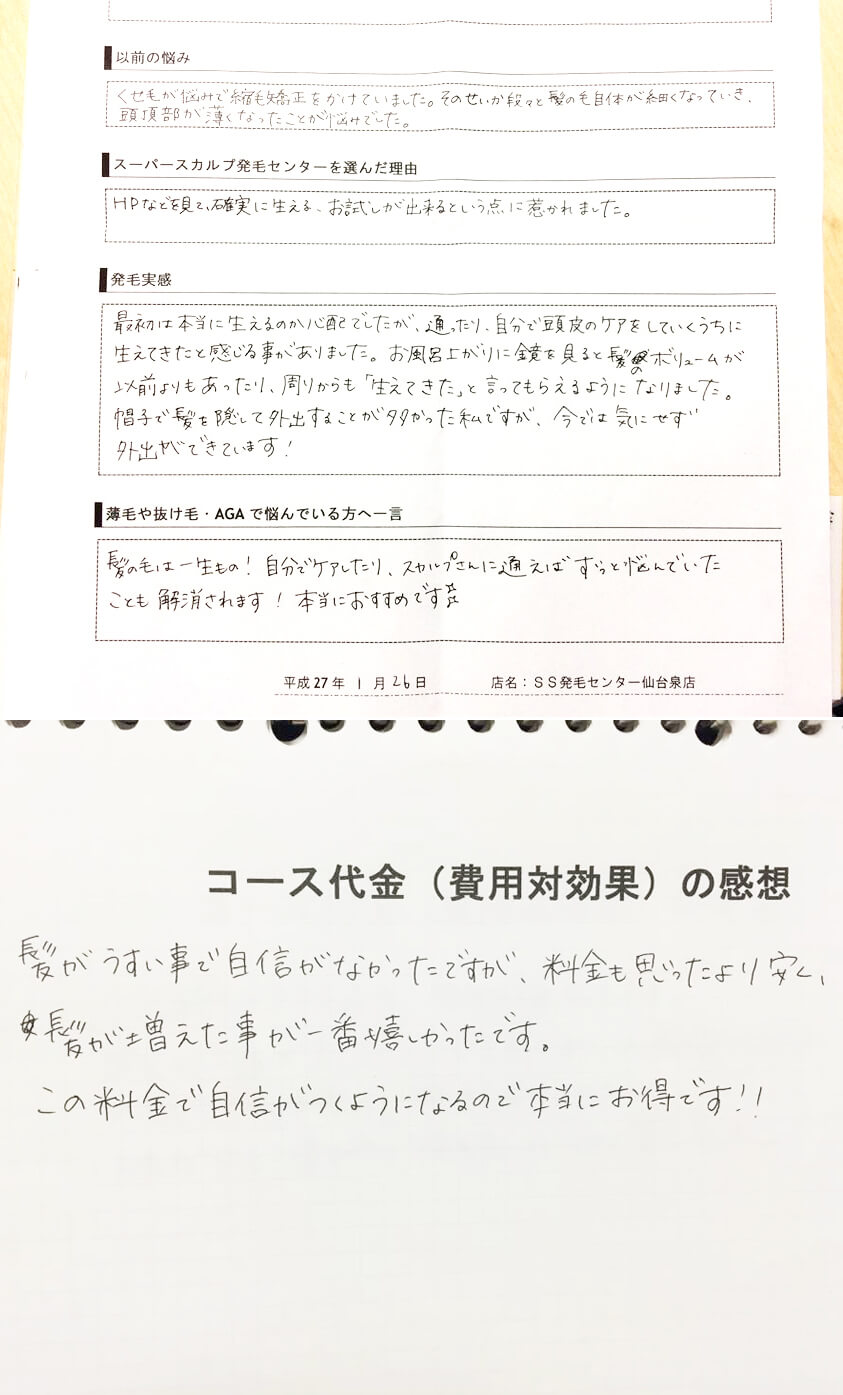 以前の悩み
くせ毛が悩みで縮毛矯正をかけていました。そのせいか段々と髪の毛自体が細くなっていき、
頭頂部が薄くなったことが悩みでした。
スーパースカルプ発毛センターを選んだ理由
HPなどを見て、確実に生える、お試しが出来るという点に惹かれました。
発毛実感
最初は本当に生えるのか心配でしたが、通ったり、自分で頭皮のケアをしていくうちに
生えてきたと感じる事がありました。お風呂上がりに鏡を見ると髪のボリュームが
以前よりもあったり、周りからも「生えてきた」と言ってもらえるようになりました。
帽子で髪を隠して外出することが多かった私ですが、今では気にせず
外出ができています!
薄毛や抜け毛・AGAで悩んでいる方へ一言
髪の毛は一生もの!自分でケアしたり、スカルプさんに通えばずっと悩んでいた
ことも解消されます!本当におすすめです
平成27年 1月26日 店名:SS発毛センター仙台泉店
コース代金(費用対効果)の感想
髪がうすい事で自信がなかったですが、料金も思ったより安く、
髪が増えた事が一番嬉しかったです。
この料金で自信がつくようになるので本当にお得です!!